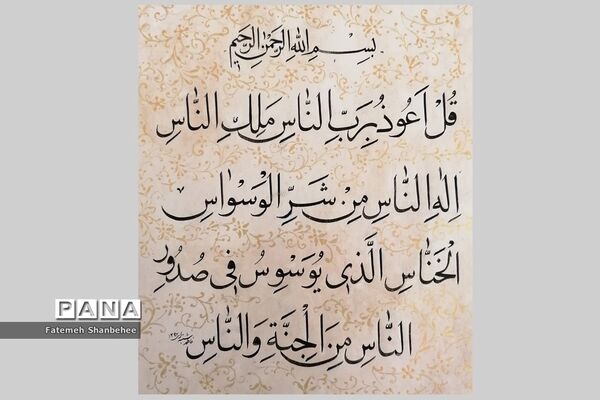 بِسْمِ اللهِ الرَّحْمٰنِ الرَّحِیمِ
قُلْ اَعُوذُ بِرَبِّ النّٰاسِ مَلِكِ النّٰاسِ
اِلٰهِ النّٰاسِ مِنْ شَرِّ الْوَسْوٰاسِ
الْخَنّٰاسِ الَّذی یُوَسْوِسُ فی صُدُورِ
النّٰاسِ مِنَ الْجِنَّةِ وَالنّٰاسِ
PANA
Fatemeh Shanbehee